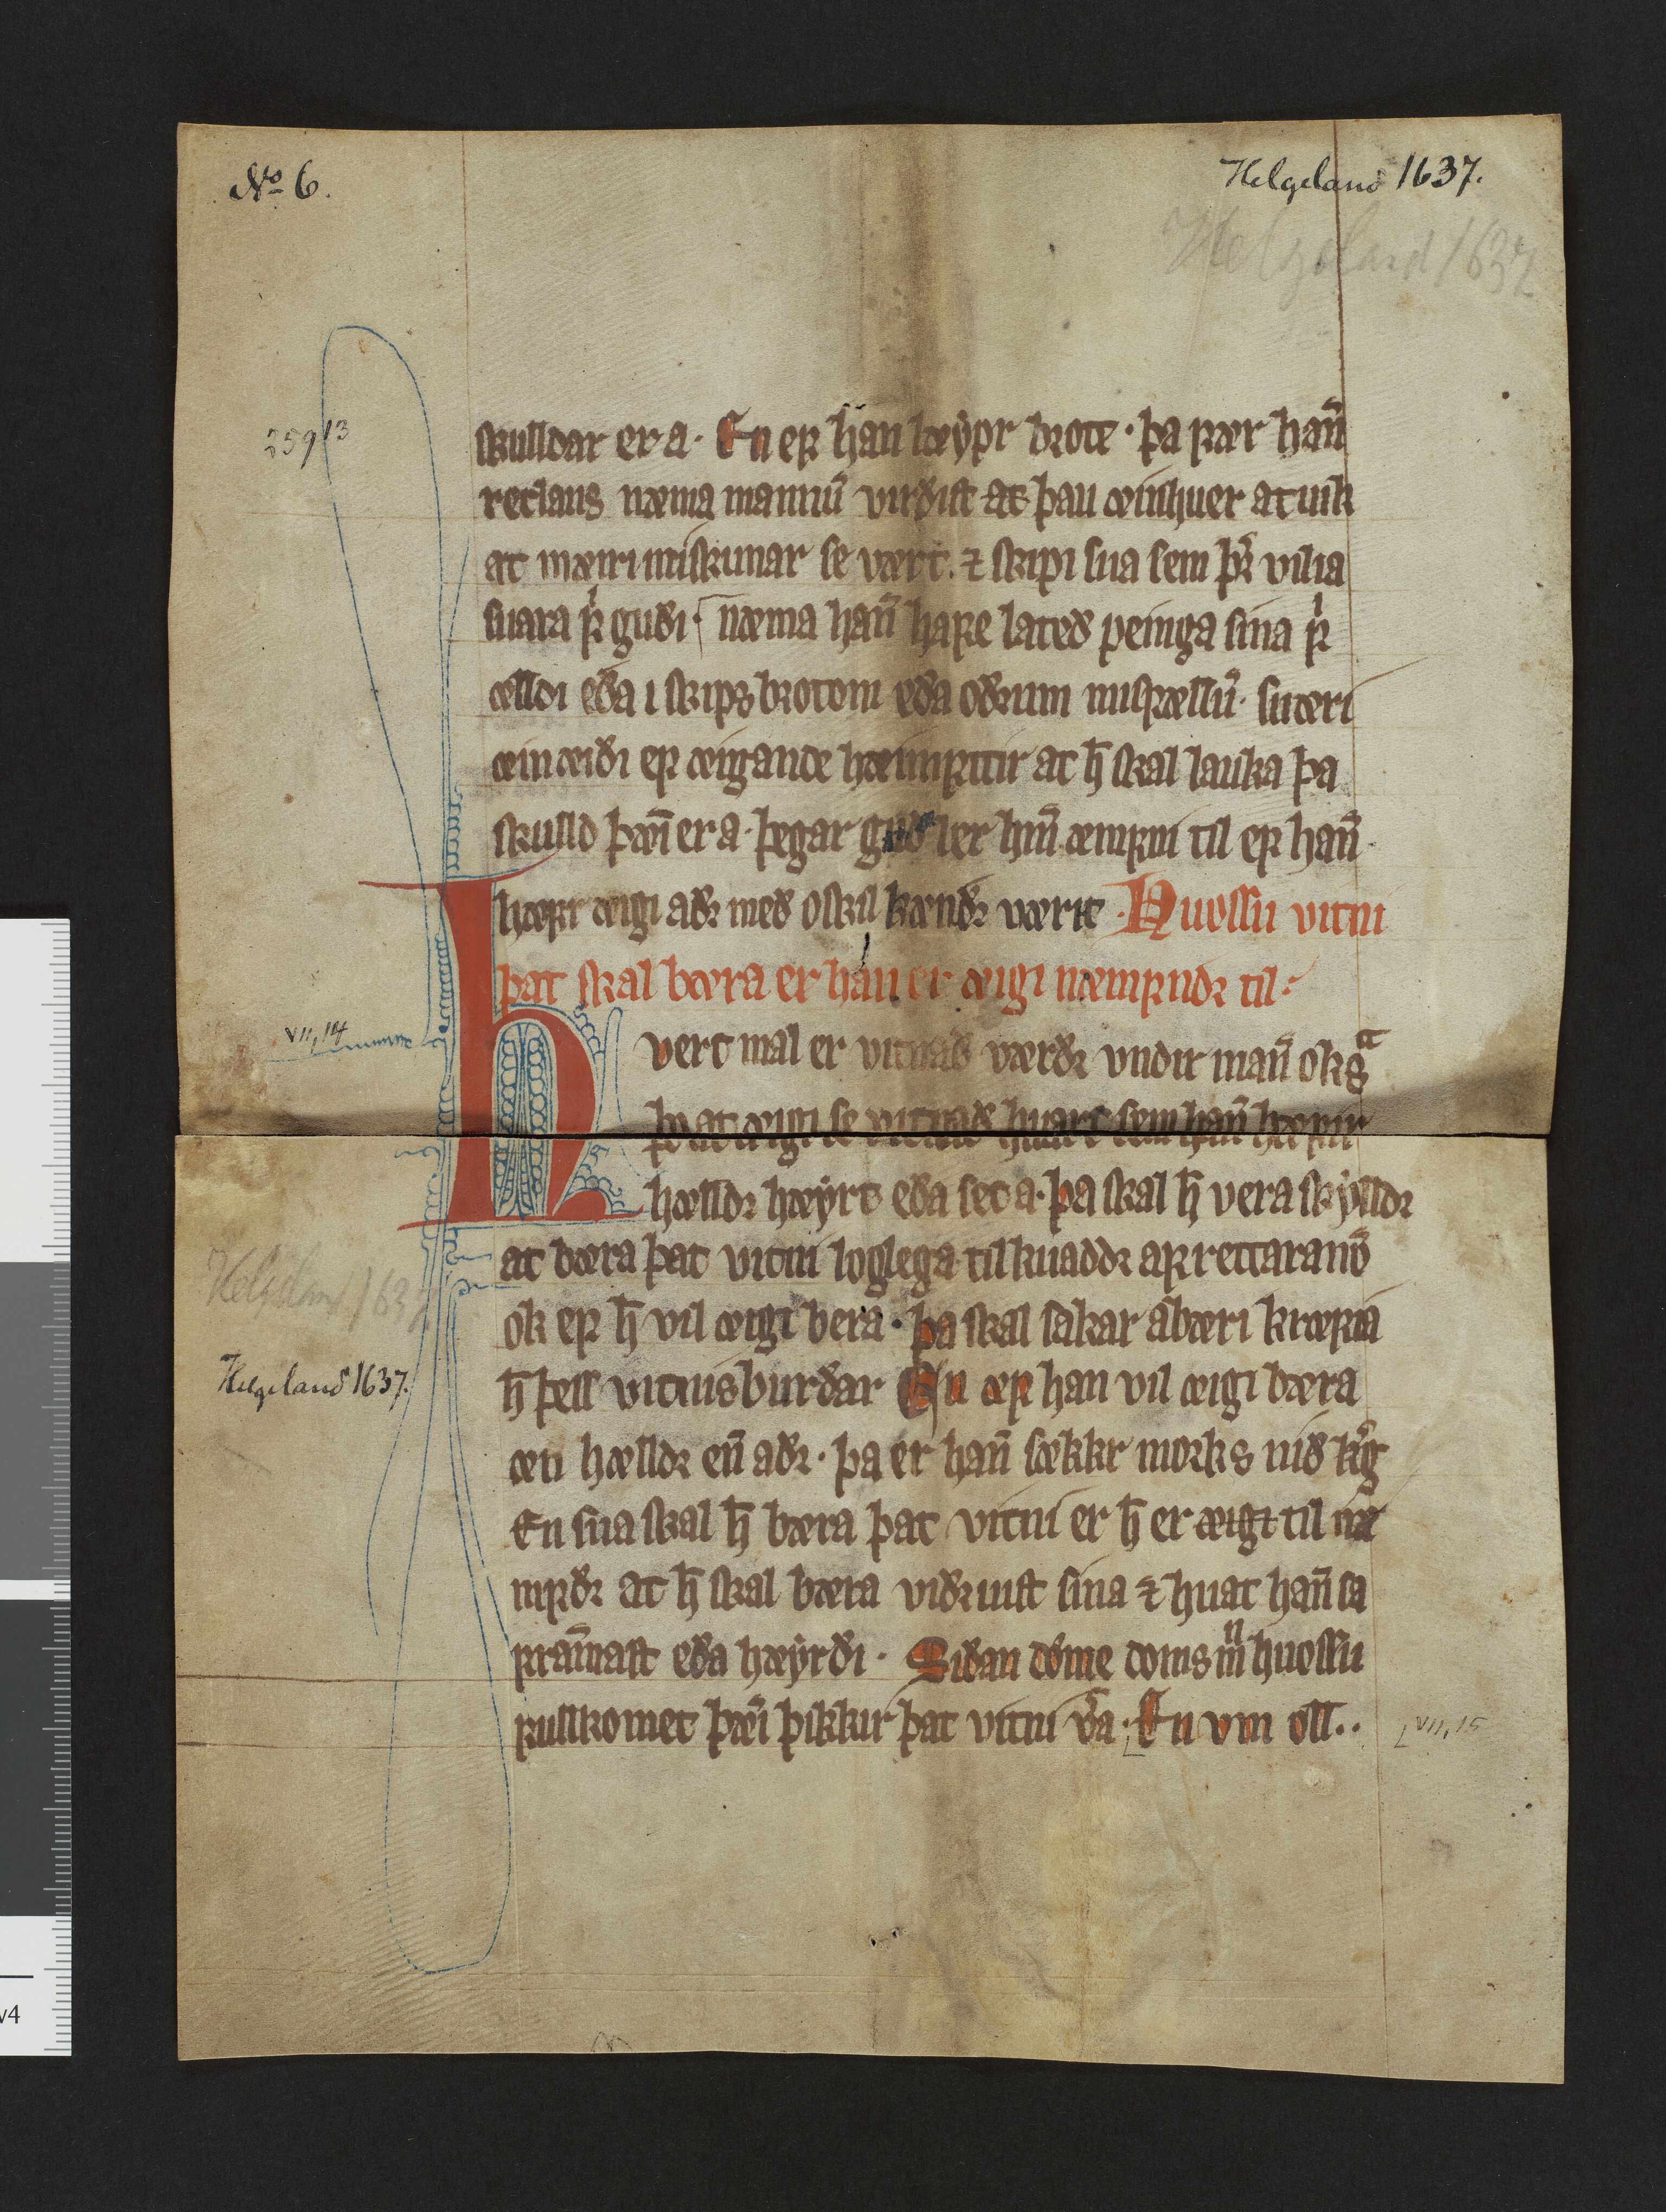 No 6.
Helgeland 1637.
Helgeland 1637
259 13
skulldar er a. En ef han læypr brote · þa fær han̄
retlaus næma mannū virðizt at þau æinhuer atuik
at mæiri miskunar se vært. ⁊ skipi sua sem þr̄ vilia
suara fͥ guði · næma han̄ hafe lateð peninga sina fͥ
ælldi eða i skips brotom eða oðrum misfællū · suæri
æin æiði ef æigande hæimfttir at h̄ skal lauka þa
skulld þæī er a · þegar guð ler hm̄ æmfni til ef han̄
hæfir æigi aðr með oskil kændr værit · Huossu vitni
þat skal bæra er han er æigi næmfndr til ·
Huert mal er vitnað værðr vndir man̄ ok sͣt
þo at æigi se vitnað huart sem han̄ hæfir
hælldr hæyrt eða set a · þa skal h̄ vera skylldr
at bæra þat vitni loglega til kuaddr af rettaranū
ok ef h̄ vil æigi bera · þa skal sakar abæri kræfia
h̄ þess vitnisburðar En æf han vil æigi bæra
æn hælldr en̄ aðr · þa er han̄ sækkr mork s við kͦg
En sua skal h̄ bæra þat vitni er h̄ er æigi til næ
mfdr at h̄ skal bæra viðruist sina ⁊ huat han̄ sa
fram̄azt eða hæyrði · Siðan dǿme doms m̄ huossu
fullkomet þæī þikkir þat vitni v̄a · En vm oll..
VII, 14
Helgeland 1637
Helgeland 1637.
VII, 15